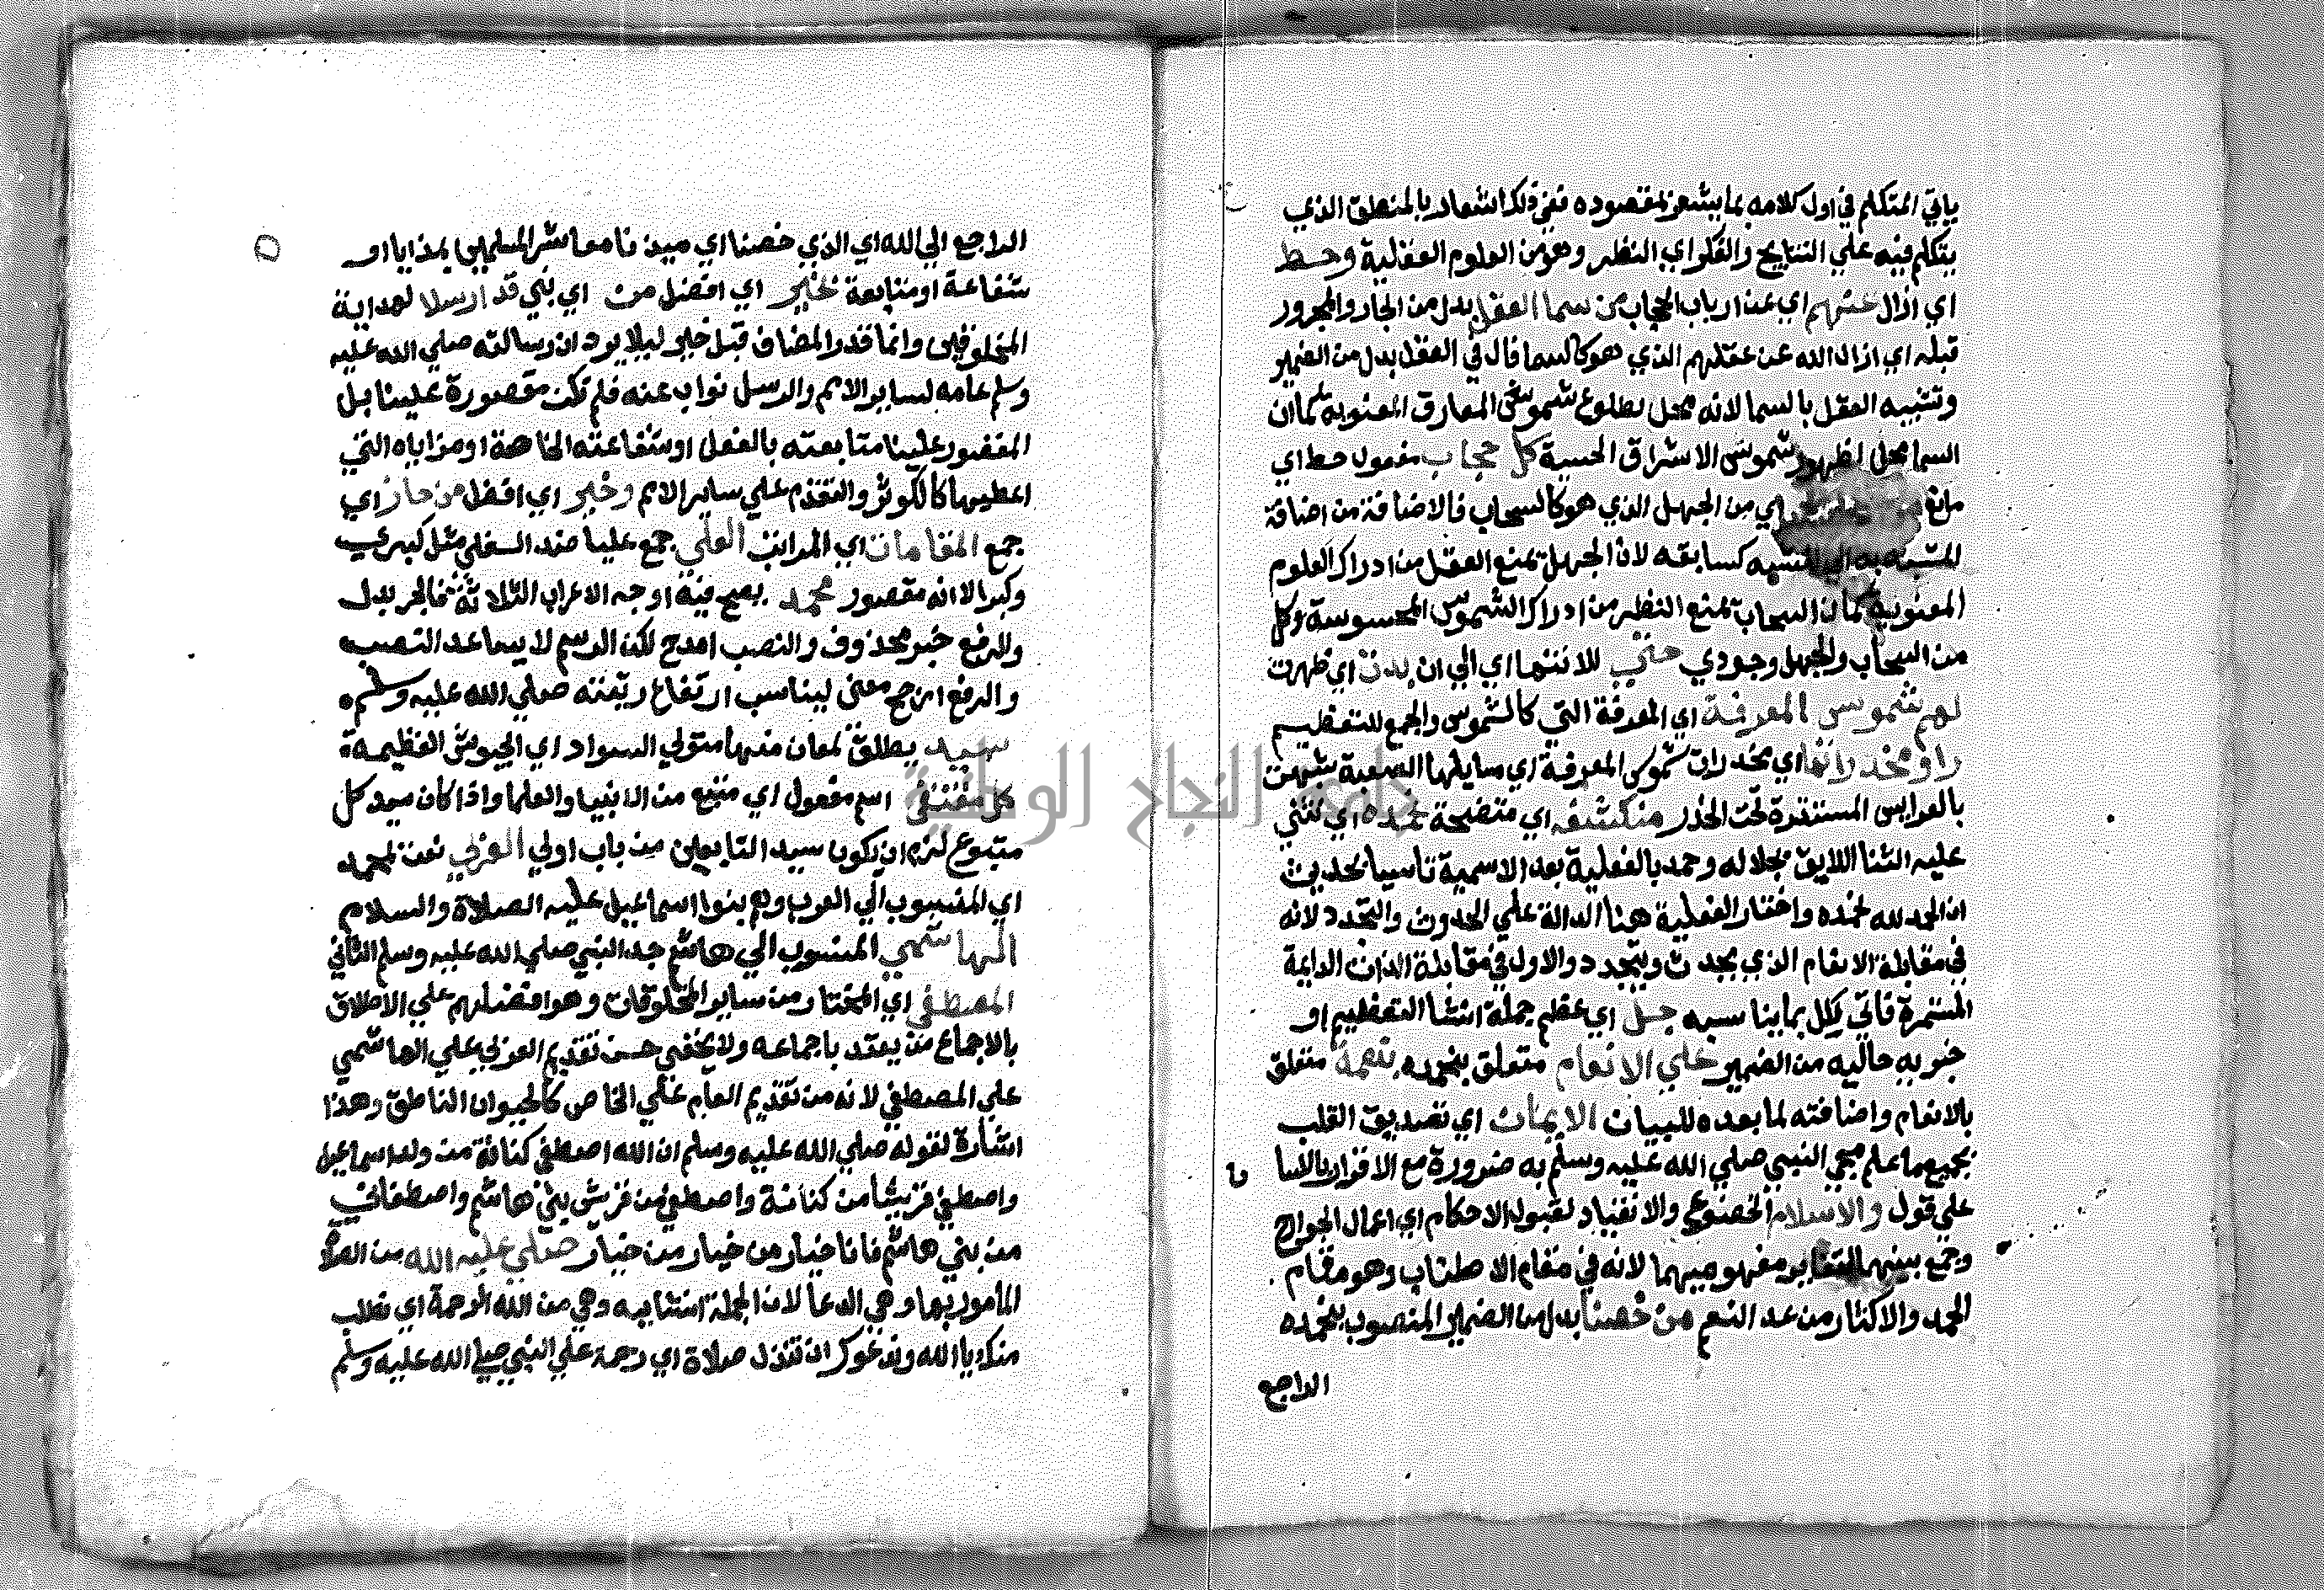 ياتي المتكلم في اول كلامه بما يشعر بمقصوده ففي ذلك اشعار بالمنطق الذي
يتكلم فيه علي النتايج والفكر اي النظر وهو من العلوم العقلية وحط
اي ازال عنهم اي عن ارباب الحجاب من سما العقل بدل من الجار والمجرور
قبله اي ازال الله عن عقلهم الذي هو كالسما فال في العقل بدل من الضمير
وتشبيه العقل بالسما لانه محل لطلوع شموس المعارف المعنوية كما ان
السما محل لظهور شموس الاشراق الحسية كل حجاب مفعول حط اي
مانع من اي من الجهل الذي هو كالسحاب فالاضافة من اضافة
المشبه به الي المشبه كسابقه لان الجهل يمنع العقل من ادراك العلوم
المعنوية كما ان السحاب يمنع النظر من ادراك الشموس المحسوسة وكل
من السحاب والجهل وجودي حتي للانتها اي الي ان بدت اي ظهرت
لهم شموس المعرفة اي المعرفة التي كالشموس والجمع للتعظيم
راو مخدراتها اي مخدرات شموس المعرفة اي مسايلها الصعبة شبهت
بالعرايس المستترة تحت الخدر منكشفه اي متضحة نحمده اي نثني
عليه الثنا اللايق بجلاله وحمد بالفعلية بعد الاسمية تاسيا بحديث
ان الحمد لله نحمده واختار الفعلية هنا الدالة علي الحدوث والتجدد لانه
في مقابلة الانعام الذي يحدث ويتجدد والاول في مقابلة الذات الدايمة
المستمرة فاتي لكل بما يناسبه جل اي عظم جملة انشا التعظيم او
خبريه حاليه من الضمير علي الانعام متعلق بنحمده بنعمة متعلق
بالانعام واضافته لما بعده للبيان الايمان اي تصديق القلب
بجميع ما علم مجي النبي صلي الله عليه وسلم به ضرورة مع الاقرار باللسا
ن
علي قول والاسلام الخضوع والانقياد لقبول الاحكام اي اعمال الجوارح
وجمع بينهما لتغاير مفهوميهما لانه في مقام الاطناب وهو مقام
الحمد والاكثار من عد النعم من خصنا بدل من الضمير المنصوب بنحمده
الراجع
الراجع الي الله اي الذي خصنا اي ميزنا معاشر المسلمين بمزايا او
شفاعة او متابعة بخير اي افضل من اي نبي قد ارسلا لهداية
المخلوقين وانما قدر المضاف قبل خير ليلا يرد ان رسالته صلي الله عليه
وسلم عامه لساير الامم والرسل نواب عنه فلم تكن مقصورة علينا بل
المقصور علينا متابعته بالفعل او شفاعته الخاصة او مزاياه التي
اعطيها كالكوثر والتقدم علي ساير الامم وخير اي افضل من حاز اي
جمع المقامات اي المراتب العلي جمع عليا ضد السفلي مثل كبري
وكبر الا انه مقصور محمد يصح فيه اوجه الاعراب الثلاثة فالجر بدل
والرفع خبر محذوف والنصب امدح لكن الرسم لا يساعد النصب
والرفع ارجح معني ليناسب ارتفاع رتبته صلي الله عليه وسلم
سيد يطلق لمعان منها متولي السواد اي الجيوش العظيمة
كل مقتفي اسم مفعول اي متبع من الانبيا والعلما واذا كان سيد كل
متبوع لزم ان يكون سيد التابعين من باب اولي العربي نعت لمحمد
اي المنسوب الي العرب وهم بنوا اسماعيل عليه الصلاة والسلام
الهاشمي المنسوب الي هاشم جد النبي صلي الله عليه وسلم الثاني
المصطفي اي المختار من ساير المخلوقات وهو افضلهم علي الاطلاق
بالاجماع من يعتد باجماعه ولا يخفي حسن تقديم العربي علي الهاشمي
علي المصطفي لانه من تقديم العام علي الخاص كالحيوان الناطق وهذا
اشارة لقوله صلي الله عليه وسلم ان الله اصطفي كنانة من ولد اسماعيل
واصطفي قريشا من كنانة واصطفي من قريش بني هاشم واصطفاني
من بني هاشم فانا خيار من خيار من خيار صلي عليه الله من الصلاة
المامور بها وهي الدعا لان الجملة انشاييه وهي من الله الرحمة اي نطلب
منك يا الله وندعوك ان تنزل صلاة اي رحمة علي النبي صلي الله عليه وسلم
جامعة النجاح الوطنية